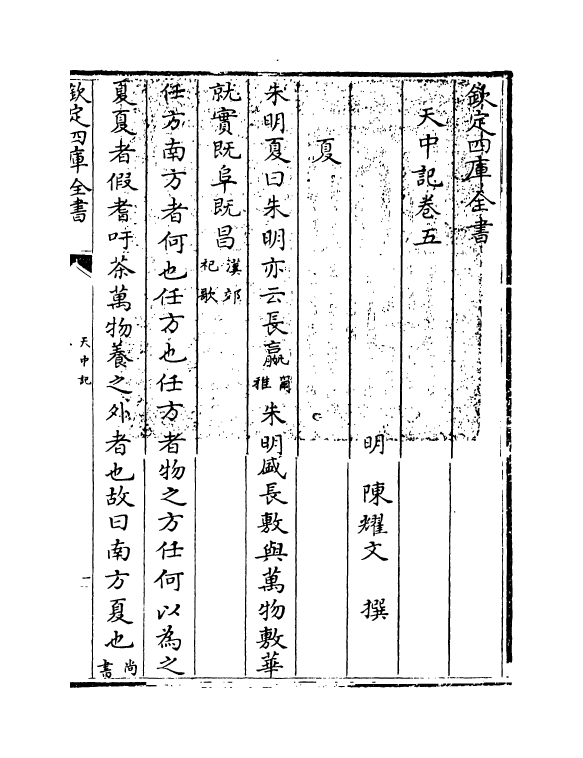 欽定四庫全書
天中記卷五
明 陳耀文 撰
夏
朱明夏曰朱明亦云長嬴爾雅朱明盛長敷與萬物敷華
就實既阜既昌漢郊祀歌
任方南方者何也任方也任方者物之方任何以為之
夏夏者假耆吁荼萬物養之外者也故曰南方夏也尚書
欽定四庫全書
天中記
一